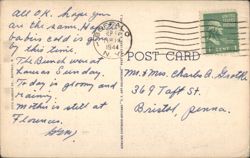 All O.K. hope you
are the same. Hope
babies cold is gone
by this time.
The Bunch were at
Louies Sunday.
Today is gloomy and
rainy.
Mother is still at
Florences.
BUFFALO
1944
N.Y.
POST CARD
Mr. & Mrs. Charles B. Groth
369 Taft St.
Bristol, Penna.